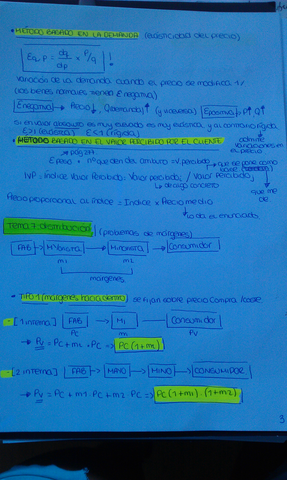 • MÉTODO BASADO EN LA DEMANDA (elasticidad del precio)
Eq,p = dq/dp × P/q !
Variación de la demanda cuando el precio de modifica 1%
(los bienes normales tienen E negativa)
E negativa → Precio ↓, Q demanda ↑ (y viceversa) E positiva → P↑ Q↑
Si en valor absoluto es muy elevado es muy elástica, y al contrario rígida
E>1 (elástica) E<1 (rígida)
admite variaciones en el precio
• MÉTODO BASADO EN EL VALOR PERCIBIDO POR EL CLIENTE
E peso × nº que den del atributo = v. percibido → que se pone como base
IVP: Índice Valor Percibido = Valor percibido / Valor Percibido
→ de algo concreto
que me de
Precio proporcional al índice = Índice × Precio medio
→ lo da el enunciado
TEMA 7: distribución (problemas de márgenes)
FAB → Mayorista → Minorista → Consumidor
m1 m2
márgenes
• TIPO 1 (márgenes hacia dentro) se fijan sobre precio compra / coste
- [1 interm.] FAB → Mi → Consumidor
PC m1 PV
→ PV = PC + m1 · PC => PC (1+m1)
- [2 interm.] FAB → MAYO → MINO → CONSUMIDOR
→ PV = PC + m1 · PC + m2 · PC => PC (1+m1) · (1+m2)
3